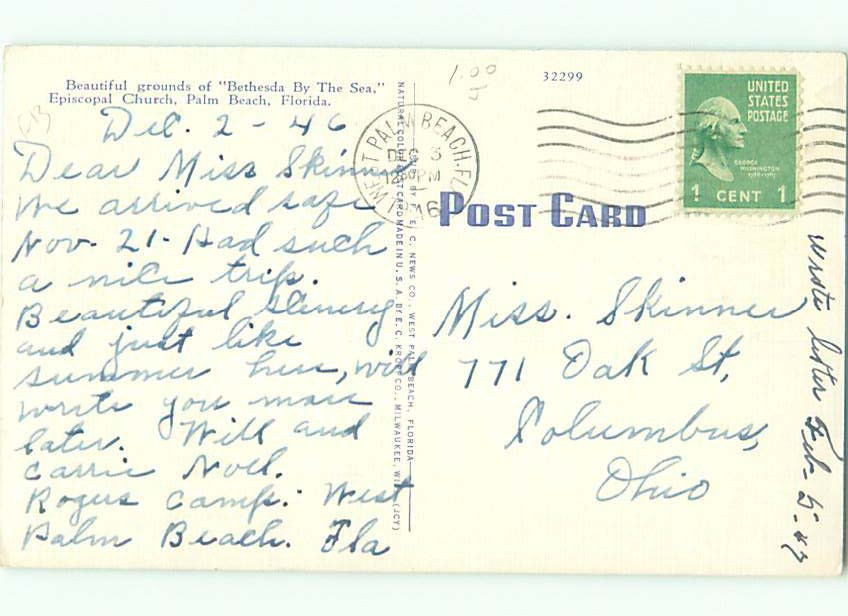 Beautiful grounds of "Bethesda By The Sea,"
Episcopal Church, Palm Beach, Florida.
Dec. 2 - 46
Dear Miss Skinner
We arrived safe
Nov. 21 - Had such
a nice trip.
Beautiful scenery
and just like
summer here, will
write you more
later. Will and
Carrie Noel.
Rogers Camp. West
Palm Beach. Fla
NATURAL COLOR POST CARD MADE IN U.S.A. BY E. C. KROPP CO., MILWAUKEE, WIS. (JCY)
E. C. NEWS CO., WEST PALM BEACH, FLORIDA
1.00
32299
WEST PALM BEACH. FLA.
DEC 3
12 30 PM
1946
POST CARD
UNITED
STATES
POSTAGE
GEORGE
WASHINGTON
1789-1797
1 CENT 1
Miss. Skinner
771 Oak St,
Columbus,
Ohio
wrote letter Feb - 5 - 47